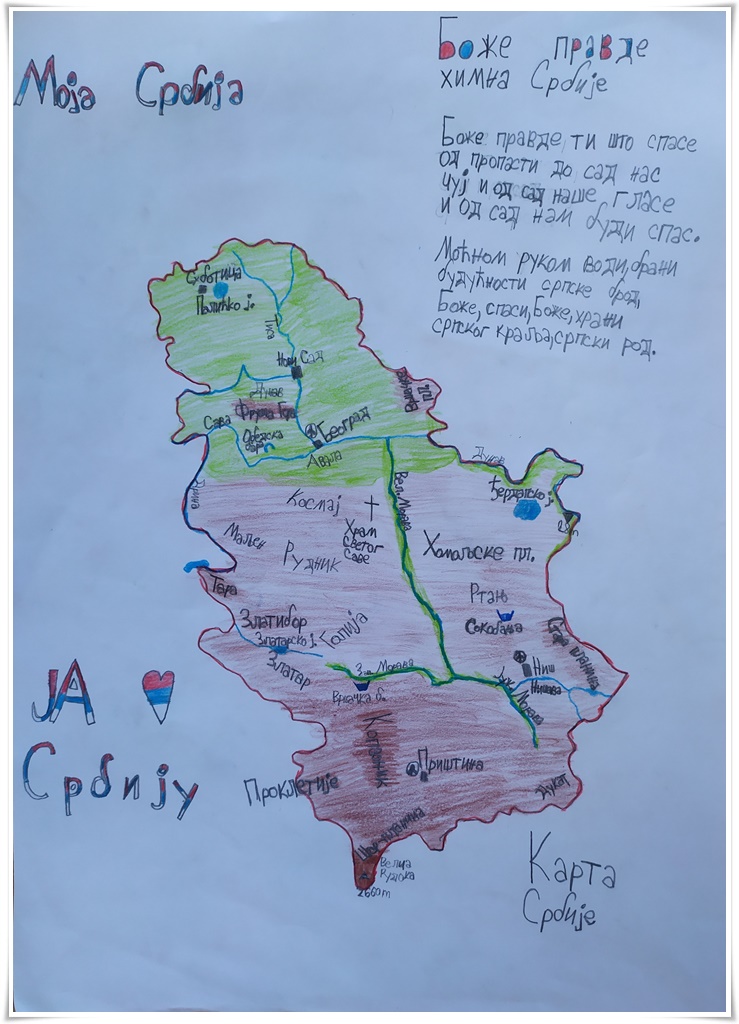 Моја Србија
Боже правде
химна Србије
Боже правде, ти што спасе
од пропасти до сад нас
чуј и од сад наше гласе
и од сад нам буди спас.
Моћном руком води, брани
будућности српске брод,
Боже, спаси, Боже, храни
српског краља, српски род.
Суботица
Палићко ј.
Тиса
Нови Сад
Дунав
Фрушка Гора
Сава
Обедска
бара
Београд
Авала
Дунав
Дрина
Вел. Морава
Ђердапско ј.
28m
Космај
Храм
Светог
Саве
Маљен
Рудник
Хомољске пл.
Тара
Ртањ
Сокобања
Златибор
Златарско ј.
Голија
Златар
Зап. Морава
Врњачка б.
Стара планина
Ниш
Нишава
Морава
Копаоник
Приштина
Проклетије
Дукат
Шар-планина
Велика
Рудока
2660m
ЈА
Србију
Карта
Србије